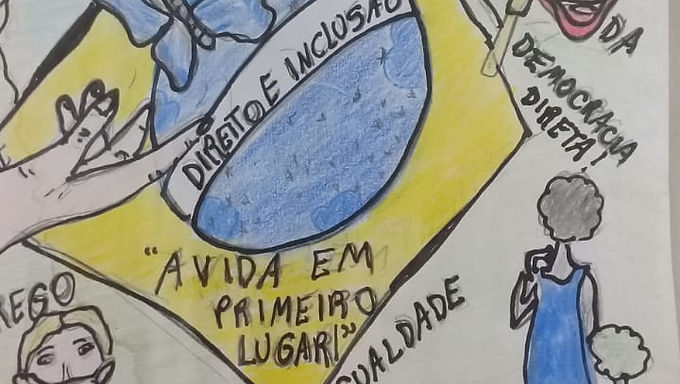 DIREITO E INCLUSÃO
DA
DEMOCRACIA
DIRETA!
"A VIDA EM
PRIMEIRO
LUGAR!"